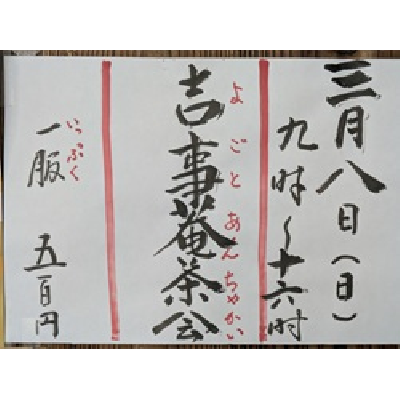 三月八日(日)
九時~十六時
吉事菴茶会
よごとあんちゃかい
一服 五百円
いっぷく